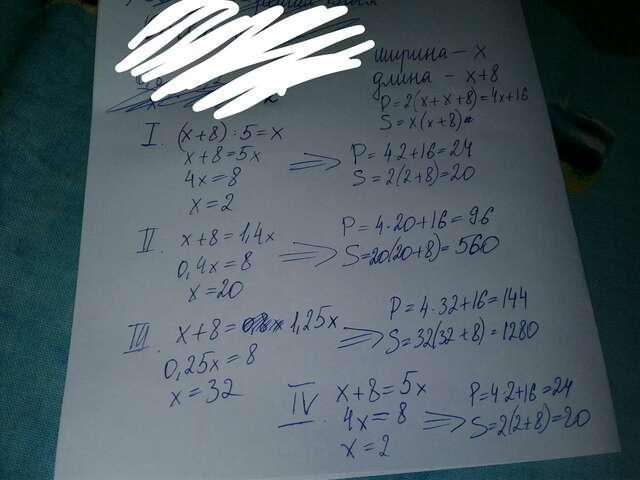 ширина – x
длина – x+8
P=2(x+x+8)=4x+16
S=x(x+8)
I. (x+8):5=x
x+8=5x
4x=8
x=2
P=4·2+16=24
S=2(2+8)=20
II. x+8=1,4x
0,4x=8
x=20
P=4·20+16=96
S=20(20+8)=560
III. x+8= 1,25x
0,25x=8
x=32
P=4·32+16=144
S=32(32+8)=1280
IV. x+8=5x
4x=8
x=2
P=4·2+16=24
S=2(2+8)=20